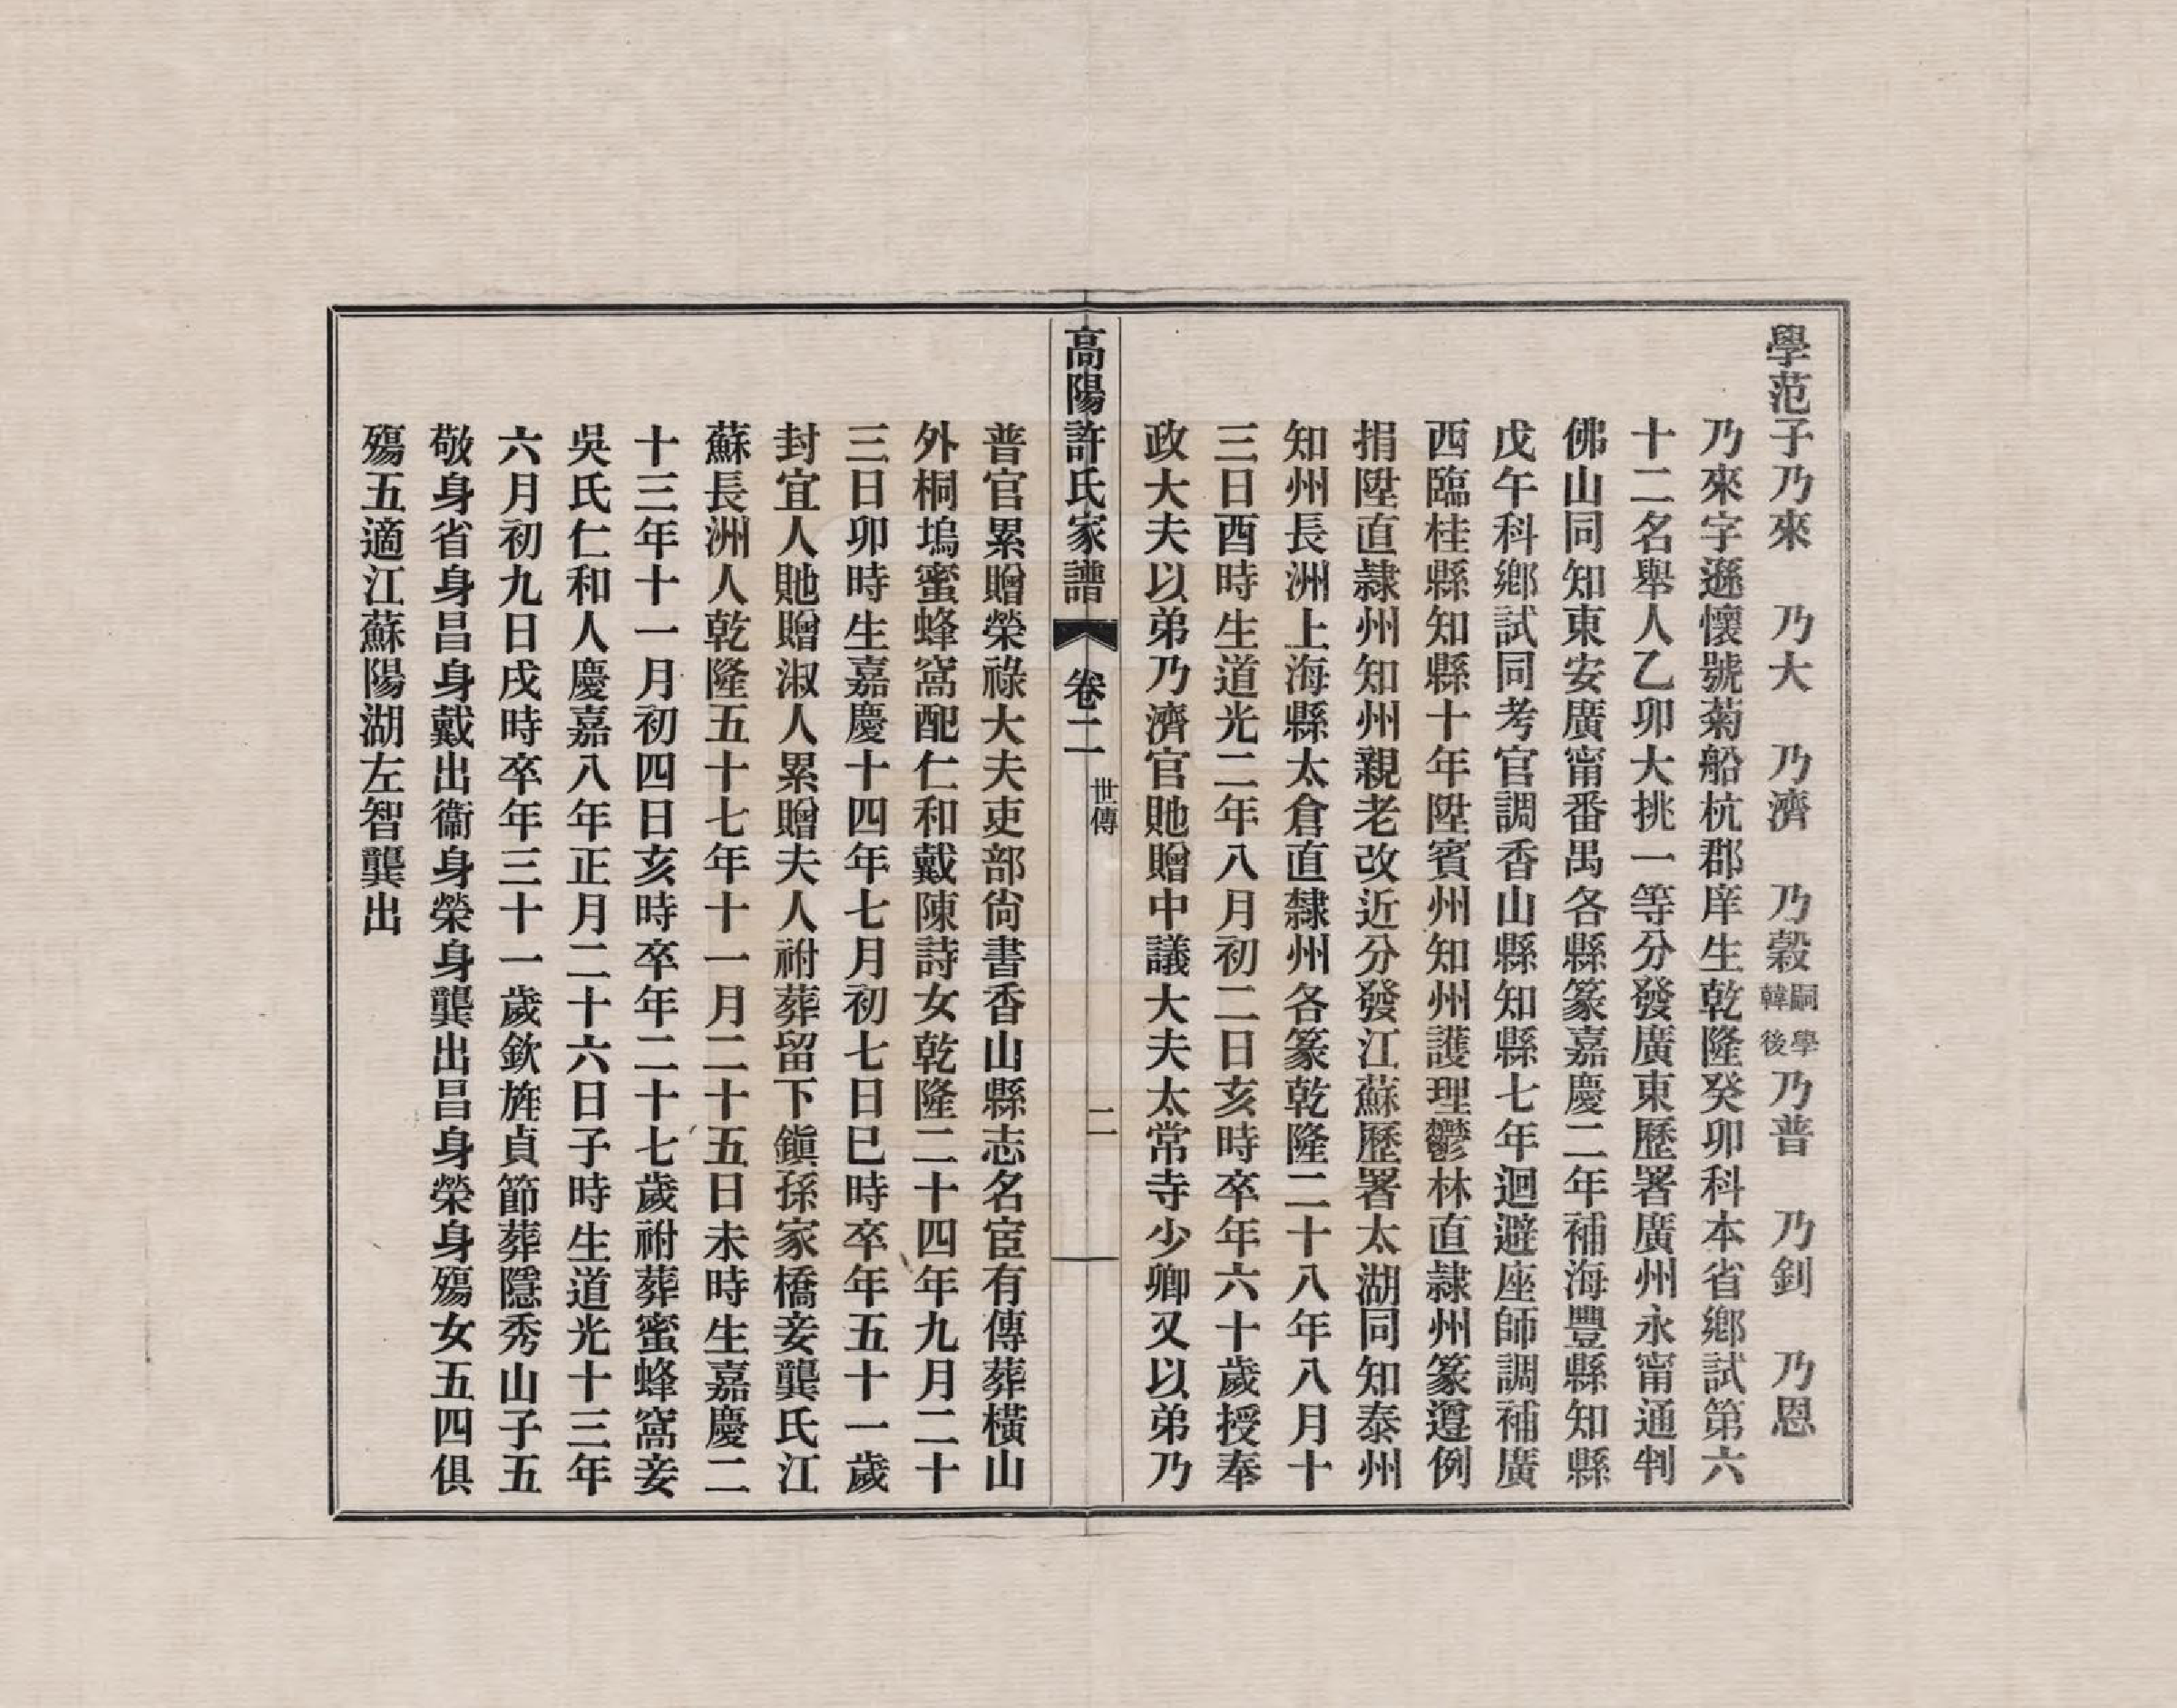 學范子乃來　乃大　乃濟　乃穀嗣學韓後乃普　乃釗　乃恩
乃來字遜懷號菊船杭郡庠生乾隆癸卯科本省鄉試第六
十二名舉人乙卯大挑一等分發廣東歷署廣州永甯通判
佛山同知東安廣甯番禺各縣篆嘉慶二年補海豐縣知縣
戊午科鄉試同考官調香山縣知縣七年迴避座師調補廣
西臨桂縣知縣十年陞賓州知州護理鬱林直隷州篆遵例
捐陞直隷州知州親老改近分發江蘇歷署太湖同知泰州
知州長洲上海縣太倉直隸州各篆乾隆二十八年八月十
三日酉時生道光二年八月初二日亥時卒年六十歲授奉
政大夫以弟乃濟官貤贈中議大夫太常寺少卿又以弟乃
高陽許氏家譜　卷二　世傳　二
普官累贈榮祿大夫吏部尙書香山縣志名宦有傳葬橫山
外桐塢蜜蜂窩配仁和戴陳詩女乾隆二十四年九月二十
三日卯時生嘉慶十四年七月初七日巳時卒年五十一歲
封宜人貤贈淑人累贈夫人祔葬留下鎭孫家橋妾龔氏江
蘇長洲人乾隆五十七年十一月二十五日未時生嘉慶二
十三年十一月初四日亥時卒年二十七歲祔葬蜜蜂窩妾
吳氏仁和人慶嘉八年正月二十六日子時生道光十三年
六月初九日戌時卒年三十一歲欽旌貞節葬隱秀山子五
敬身省身昌身戴出衞身榮身龔出昌身榮身殤女五四俱
殤五適江蘇陽湖左智龔出